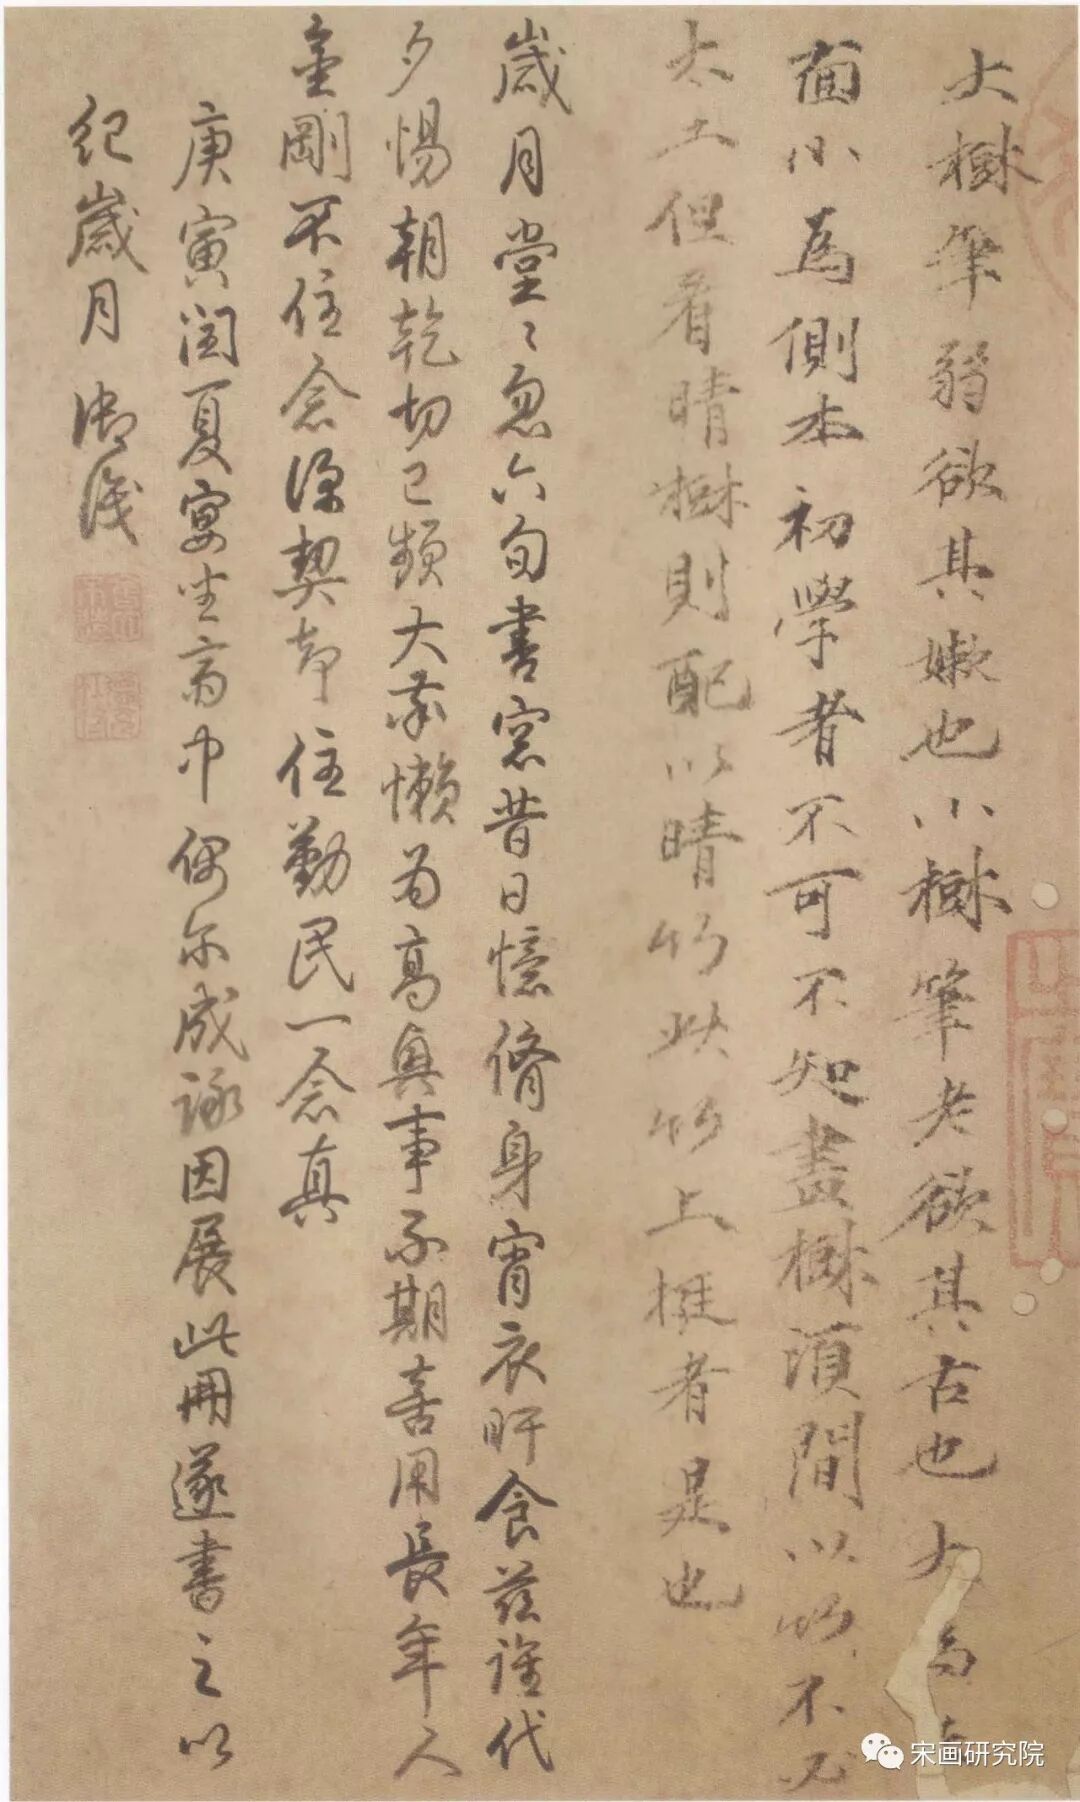 大樹筆弱欲其嫩也小樹筆老欲其古也大為
面小為側本初學者不可不知畫樹須間以竹不必
太工但看晴樹則配以晴竹此竹上挺者是也
歲月堂〻忽六旬書窓昔日憶脩身宵衣旰食茲誰代
夕惕朝乾切己頻大布懶為高興事不期喜用長年人
金剛不住念深契却住勤民一念真
庚寅閏夏宴坐高中偶尔成詠因展此冊遂書之以
紀歲月 御識
宋画研究院